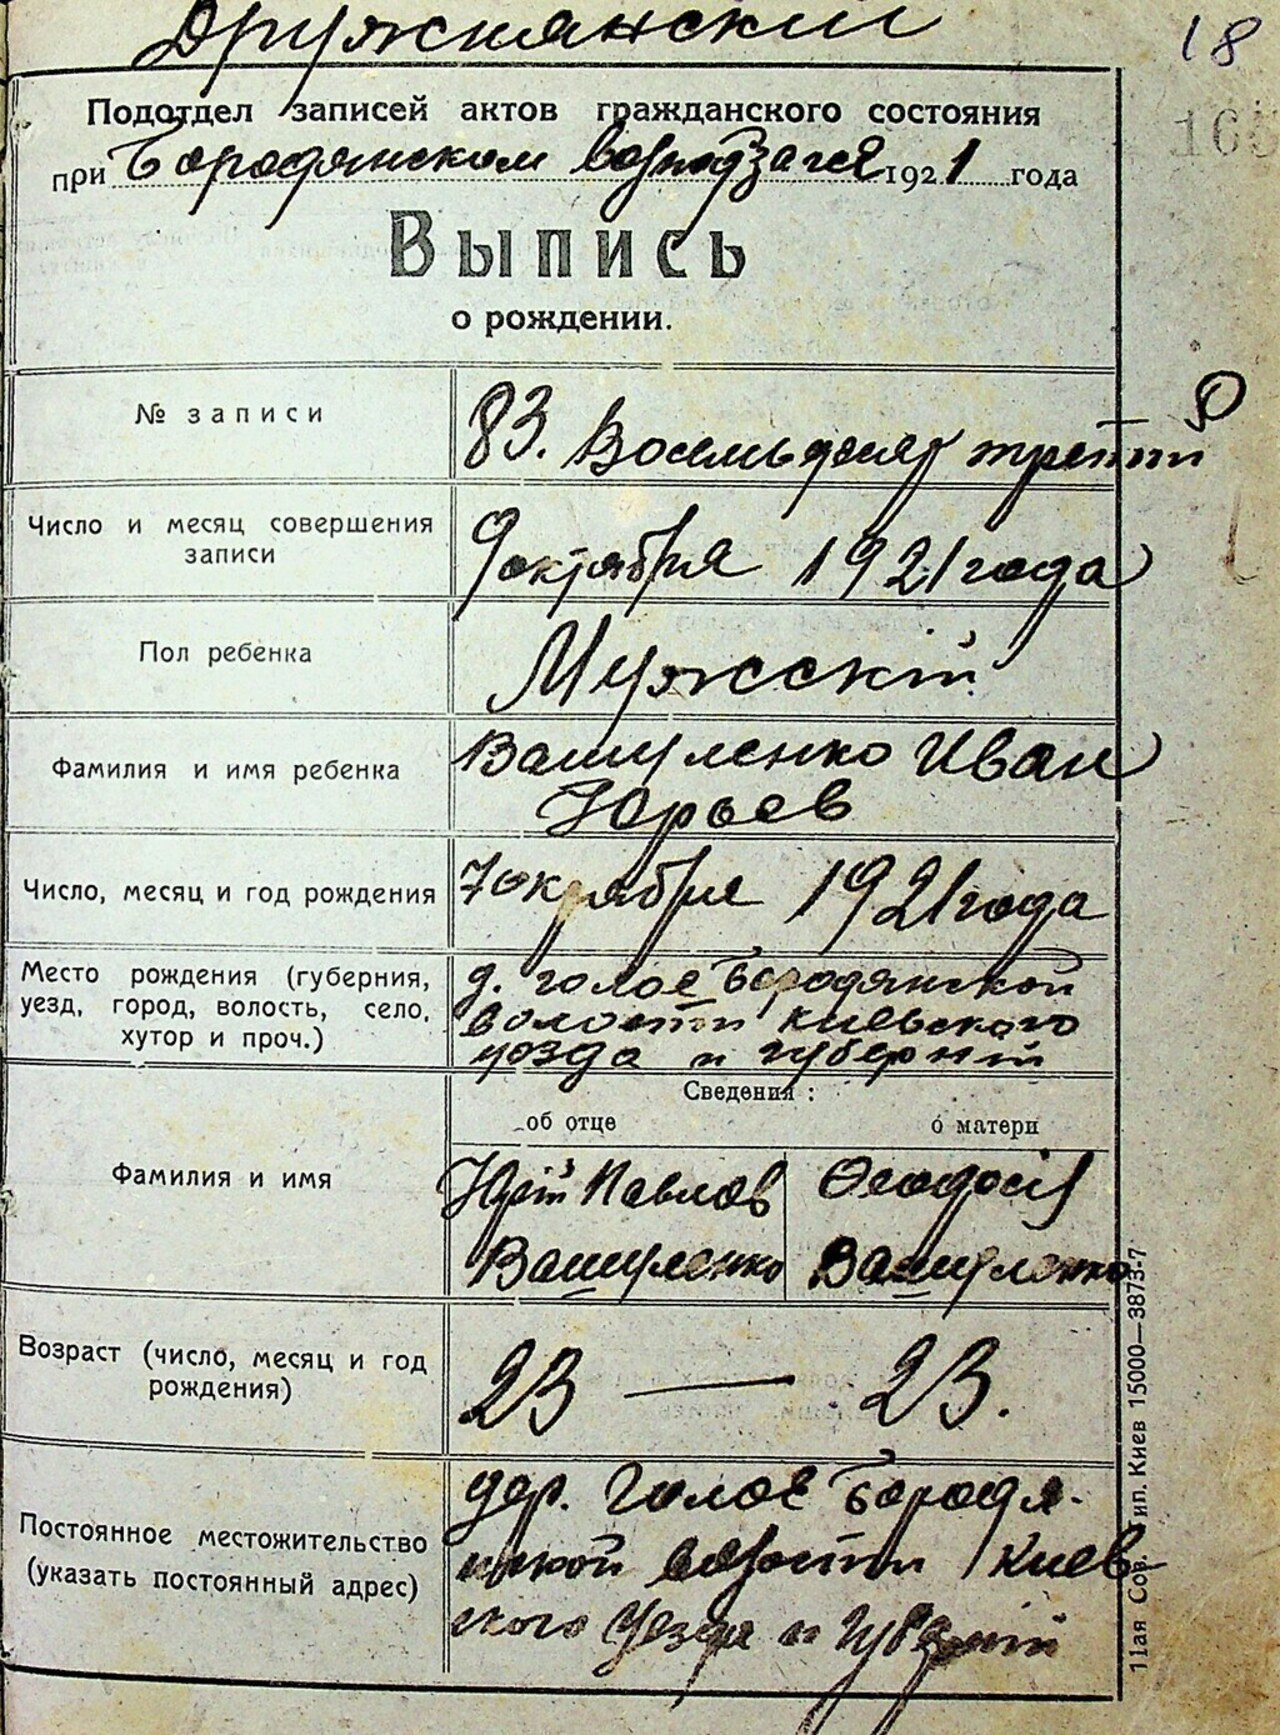 Дружнянский
18
165
Подотдел записей актов гражданского состояния
при Бородянском волподзагсе 1921 года
Выпись
о рождении.
№ записи
83. Восемьдесят третий
Число и месяц совершения
записи
9 октября 1921 года
Пол ребенка
Мужсскій
Фамилия и имя ребенка
Вашуленко Иван
Юрьев
Число, месяц и год рождения
7 октября 1921 года
Место рождения (губерния,
уезд, город, волость, село,
хутор и проч.)
д. Голое Бородянской
волости Киевского
уезда и губерній
Сведения:
об отце
о матери
Фамилия и имя
Юрій Павлов
Вашуленко
Феодосія
Вашуленко
Возраст (число, месяц и год
рождения)
23 — 23.
Постоянное местожительство
(указать постоянный адрес)
дер. Голое Бородя-
нской волости Киев-
ского уезда и губерній
11ая Сов. тип. Киев 15000—3873-7